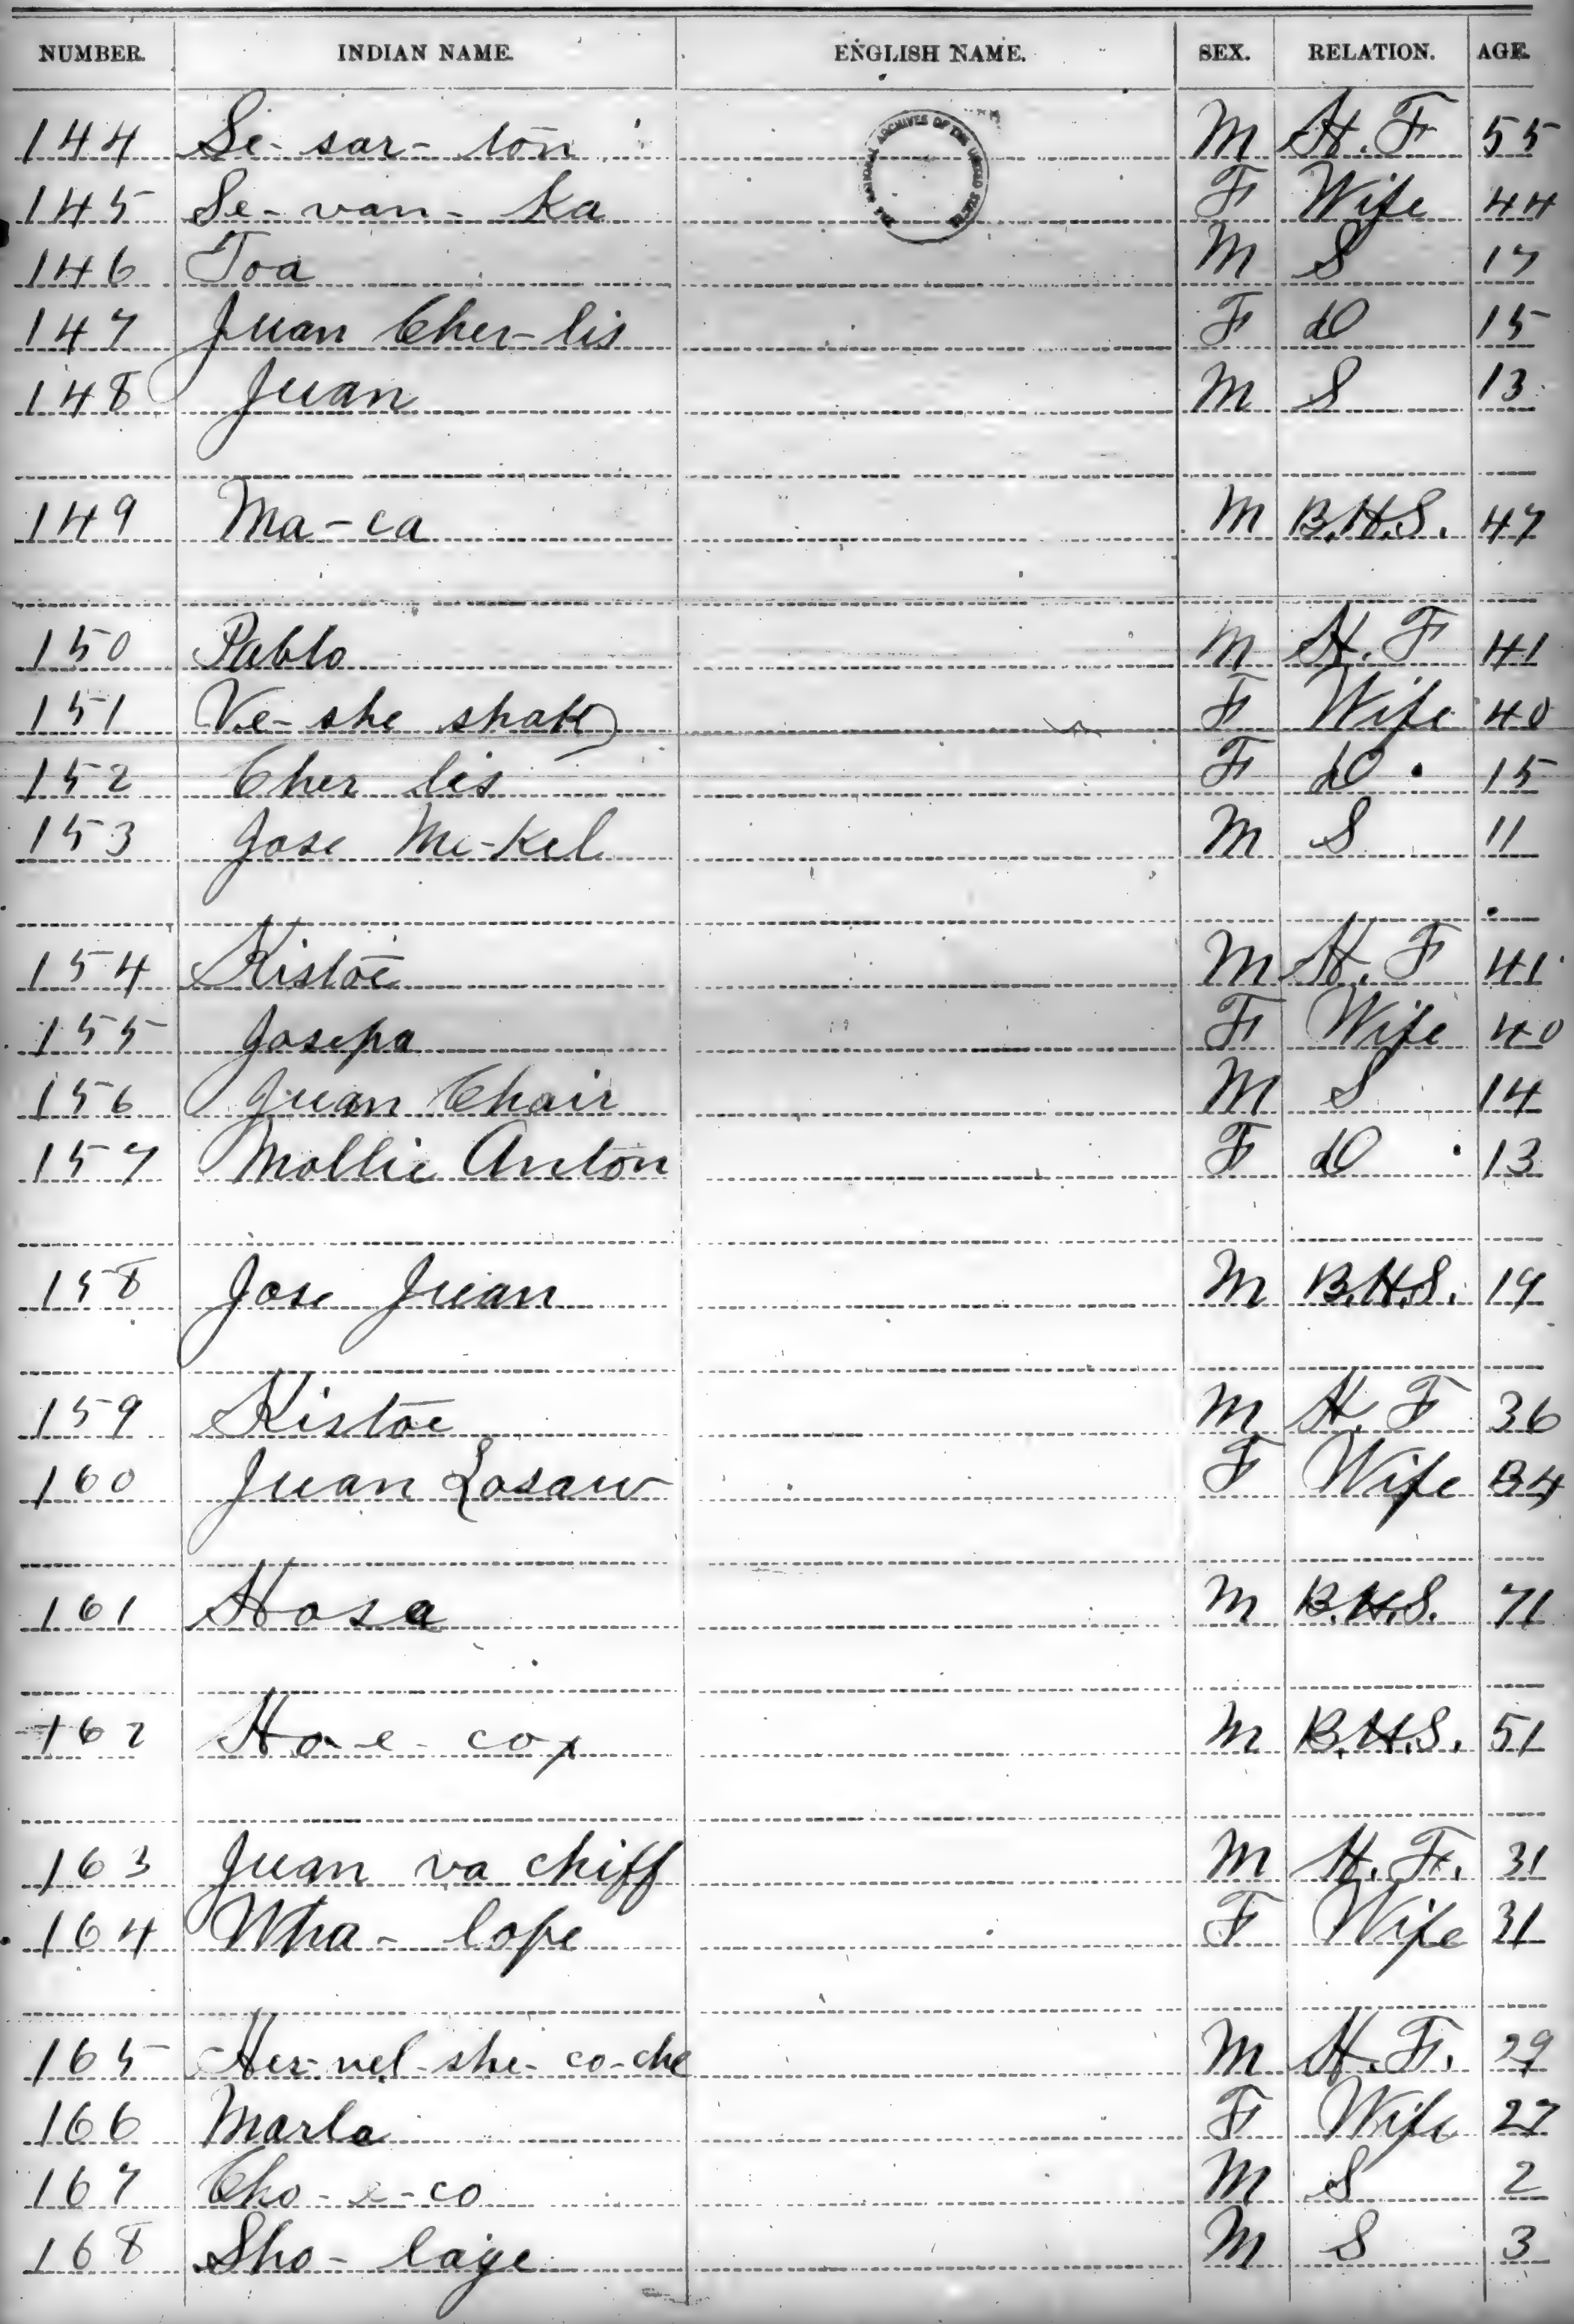 NUMBER. INDIAN NAME. ENGLISH NAME. SEX. RELATION. AGE.
THE NATIONAL ARCHIVES OF THE UNITED STATES
144 Se-sar-ton M H.F 55
145 Se-van-Ka F Wife 44
146 Toa M S 17
147 Juan Cher-lis F D 15
148 Juan M S 13
149 Ma-ca M B.H.S. 47
150 Pablo M H.F 41
151 Ve-she shak F Wife 40
152 Cher lis F D 15
153 Jose Me-Kel M S 11
154 Kistoe M H.F 41
155 Josepa F Wife 40
156 Juan Chair M S 14
157 Mollie Anton F D 13
158 Jose Juan M B.H.S. 19
159 Kistoe M H.F 36
160 Juan Losaw F Wife 34
161 Hosa M B.H.S. 71
162 Ho-e-cox M B.H.S. 51
163 Juan va chiff M H.F. 31
164 Wha-lope F Wife 31
165 Her-vel-she-co-che M H.F. 29
166 Marla F Wife 27
167 Cho-e-co M S 2
168 Sho-laye M S 3